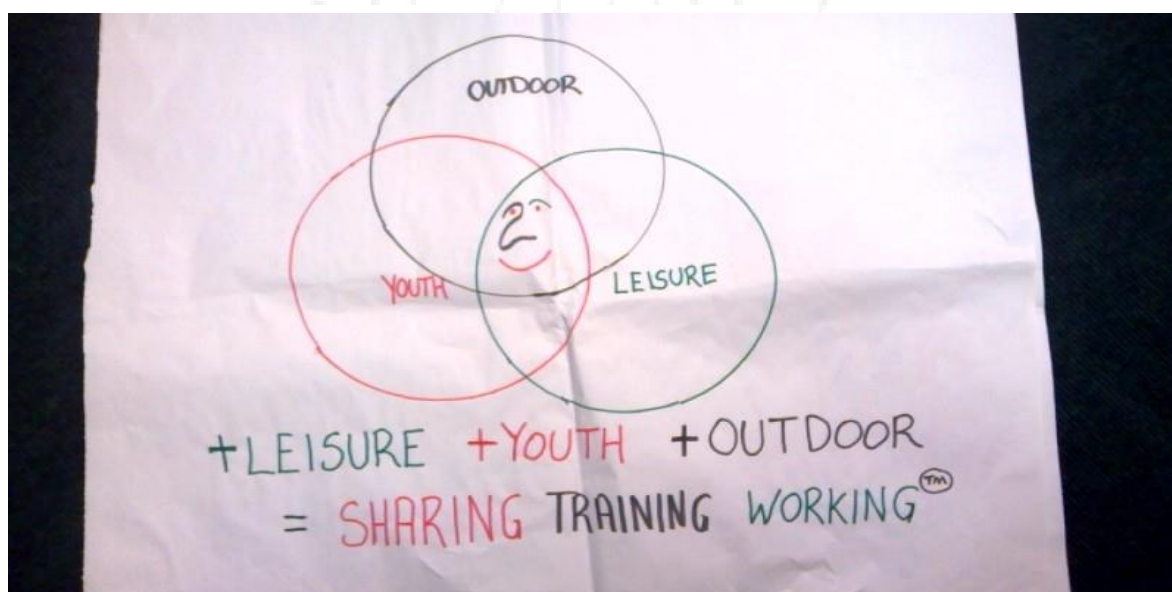 OUTDOOR
YOUTH
LEISURE
+LEISURE +YOUTH +OUTDOOR
= SHARING TRAINING WORKING TM